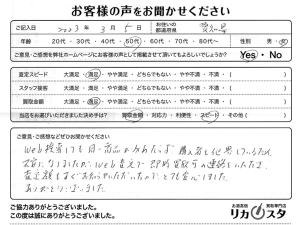 お客様の声をお聞かせください
ご記入日 3年 3月 5日 お住いの都道府県
年齢 20代・30代・40代・50代・60代・70代・80代〜 性別 男・女
ご意見・ご感想を弊社ホームページにお客様の声として掲載させて頂いてもよろしいでしょうか? Yes・No
査定スピード 大満足・満足・やや満足・どちらでもない・やや不満・不満・( )
スタッフ接客 大満足・満足・やや満足・どちらでもない・やや不満・不満・( )
買取金額 大満足・満足・やや満足・どちらでもない・やや不満・不満・( )
当店をお選びいただきました決め手は? 買取金額・対応力・利便性・スピード・その他( )
ご意見・ご感想などぜひお聞かせください
Web検索しても同一商品がみあたらず 購入者も他界しているため
Web査定で即時買取可の連絡をいただき
査定額もすぐお知らせいただいて とても助かりました
ありがとうございました
ご協力ありがとうございました。
この度は誠にありがとうございました。
お酒高価買取専門店
リカスタ